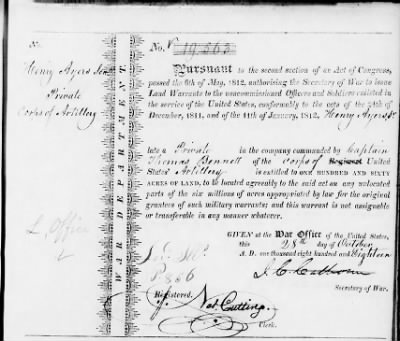 No. 
Henry Ayers Senr
Private
Corps of Artillery
L. Office
WAR DEPARTMENT.
No. 19,563
PURSUANT to the second section of an Act of Congress,
passed the 6th of May, 1812, authorising the Secretary of War to issue
Land Warrants to the noncommissioned Officers and Soldiers enlisted in
the service of the United States, conformably to the acts of the 24th of
December, 1811, and of the 11th of January, 1812, Henry Ayers Sr
late a Private in the company commanded by Captain
Thomas Bennett of the Corps of Regiment United
States' Artillery is entitled to ONE HUNDRED AND SIXTY
ACRES OF LAND, to be located agreeably to the said act on any unlocated
parts of the six millions of acres appropriated by law for the original
grantees of such military warrants; and this warrant is not assignable
or transferable in any manner whatever.
GIVEN at the War Office of the United States,
this 28th day of October
A. D. one thousand eight hundred and Eighteen
J. C. Calhoun
Secretary of War.
Registered.
Nat Cutting.
Clerk.